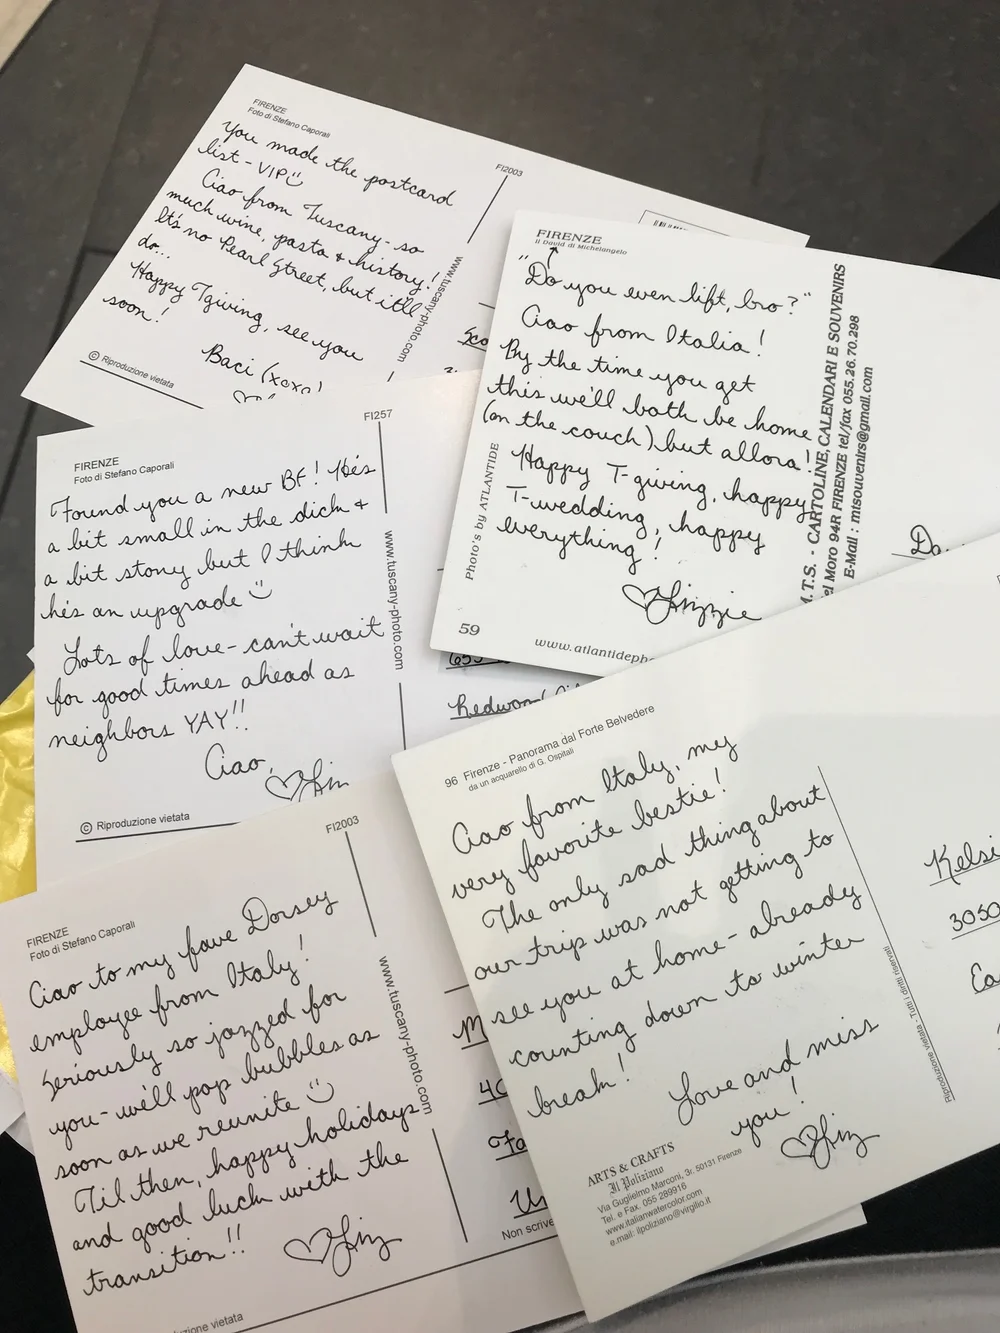 FIRENZE
Foto di Stefano Caporali
You made the postcard
list - VIP
Ciao from Tuscany - so
much wine, pasta & history!
It's no Pearl Street, but it'll
do...
Happy Tgiving, see you
soon!
Baci (xoxo)
© Riproduzione vietata
FI2003
www.tuscany-photo.com
FIRENZE
Il David di Michelangelo
"Do you even lift, bro?"
Ciao from Italia!
By the time you get
this we'll both be home
(on the couch) but allora!
Happy T-giving, happy
T-wedding, happy
everything!
Lizzie
59
Photo's by ATLANTIDE
www.atlantideph
M.T.S. - CARTOLINE, CALENDARI E SOUVENIRS
el Moro 94R FIRENZE tel/fax 055.26.70.298
E-Mail : mtsouvenirs@gmail.com
Da
FI257
FIRENZE
Foto di Stefano Caporali
Found you a new BF! He's
a bit small in the dick &
a bit stony but I think
he's an upgrade
Lots of love - can't wait
for good times ahead as
neighbors YAY!!
Ciao,
Liz
© Riproduzione vietata
www.tuscany-photo.com
655
Redwood
96 Firenze - Panorama dal Forte Belvedere
da un acquarello di G. Ospitali
Ciao from Italy, my
very favorite bestie!
The only sad thing about
our trip was not getting to
see you at home - already
counting down to winter
break!
Love and miss
you!
Liz
ARTS & CRAFTS
Il Poliziano
Via Guglielmo Marconi, 3r. 50131 Firenze
Tel. e Fax. 055 289916
www.italianwatercolor.com
e.mail: ilpoliziano@virgilio.it
Riproduzione vietata - Tutti i diritti riservati
Kelsi
3050
FI2003
FIRENZE
Foto di Stefano Caporali
Ciao to my fave Dorsey
employee from Italy!
Seriously so jazzed for
you - we'll pop bubbles as
soon as we reunite
Til then, happy holidays
and good luck with the
transition!!
Liz
www.tuscany-photo.com
Non scrive
duzione vietata